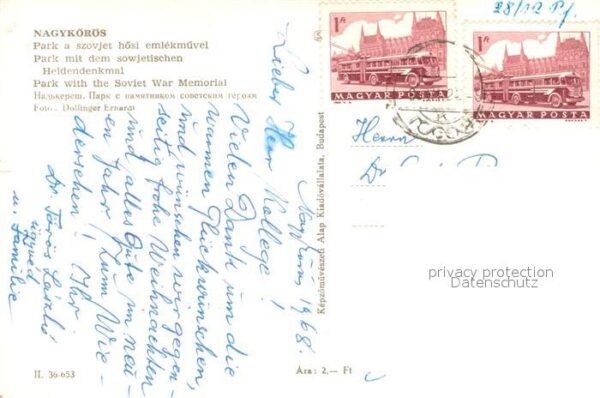 NAGYKŐRÖS
Park a szovjet hősi emlékművel
Park mit dem sowjetischen
Heldendenkmal
Park with the Soviet War Memorial
Надькереш. Парк с памятником советским героям
Foto: Dollinger Erhardt
Nagykőrös 1968.
Lieber Herr Kollege!
Vielen Dank um die
warmen Glückwünschen,
und wünschen wir gegen-
seitig frohe Weihnachten
und alles Gute im neu-
en Jahr! Zum Wie-
dersehen! Ihr
Dr. Törös László
ügyvéd
u. Familie
II. 36-653
Képzőművészeti Alap Kiadóvállalata, Budapest
Ára: 2,— Ft
28/12 Pf.
1 Ft
MAGYAR POSTA
1 Ft
MAGYAR POSTA
Herrn
Dr.
privacy protection
Datenschutz